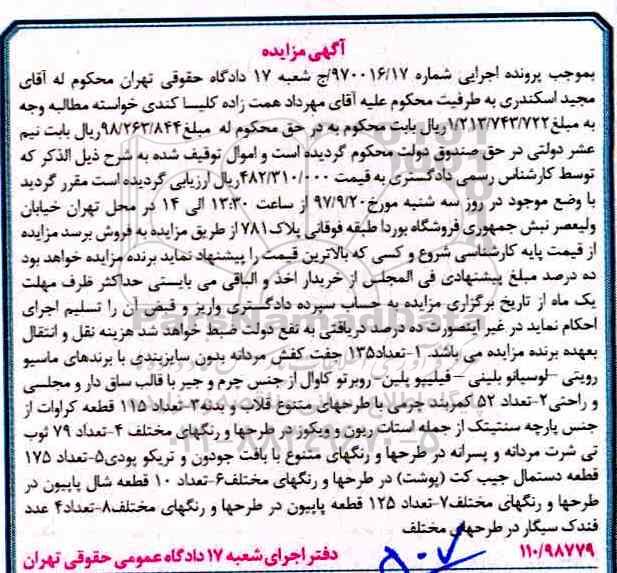 آگهی مزایده
بموجب پرونده اجرایی شماره ۹۷۰۰۱۶/۱۷/ج شعبه ۱۷ دادگاه حقوقی تهران محکوم له آقای
مجید اسکندری به طرفیت محکوم علیه آقای مهرداد همت زاده کلیسا کندی خواسته مطالبه وجه
به مبلغ۱/۲۱۳/۷۴۳/۷۲۲ریال بابت محکوم به در حق محکوم له مبلغ۹۸/۲۶۳/۸۴۴ریال بابت نیم
عشر دولتی در حق صندوق دولت محکوم گردیده است و اموال توقیف شده به شرح ذیل الذکر که
توسط کارشناس رسمی دادگستری به قیمت ۴۸۲/۳۱۰/۰۰۰ریال ارزیابی گردیده است مقرر گردید
با وضع موجود در روز سه شنبه مورخ۹۷/۹/۲۰ از ساعت ۱۳:۳۰ الی ۱۴ در محل تهران خیابان
ولیعصر نبش جمهوری فروشگاه بوردا طبقه فوقانی پلاک۷۸۱ از طریق مزایده به فروش برسد مزایده
از قیمت پایه کارشناسی شروع و کسی که بالاترین قیمت را پیشنهاد نماید برنده مزایده خواهد بود
ده درصد مبلغ پیشنهادی فی المجلس از خریدار اخذ و الباقی می بایستی حداکثر ظرف مهلت
یک ماه از تاریخ برگزاری مزایده به حساب سپرده دادگستری واریز و قبض آن را تسلیم اجرای
احکام نماید در غیر اینصورت ده درصد دریافتی به نفع دولت ضبط خواهد شد هزینه نقل و انتقال
بعهده برنده مزایده می باشد. ۱-تعداد۱۳۵ جفت کفش مردانه بدون سایزبندی با برندهای ماسیو
رویتی -لوسیانو بلینی - فیلیپو پلین-روبرتو کاوال از جنس چرم و جیر با قالب ساق دار و مجلسی
و راحتی۲-تعداد ۵۲ کمربند چرمی با طرحهای متنوع قلاب و بدنه۳-تعداد ۱۱۵ قطعه کراوات از
جنس پارچه سنتیتک از جمله استات ریون و ویکوز در طرحها و رنگهای مختلف ۴-تعداد ۷۹ ثوب
تی شرت مردانه و پسرانه در طرحها و رنگهای متنوع با بافت جودون و تریکو پودی۵-تعداد ۱۷۵
قطعه دستمال جیب کت (پوشت) در طرحها و رنگهای مختلف۶-تعداد ۱۰ قطعه شال پاپیون در
طرحها و رنگهای مختلف۷-تعداد ۱۲۵ قطعه پاپیون در طرحها و رنگهای مختلف۸-تعداد۴ عدد
فندک سیگار در طرحهای مختلف
۱۱۰/۹۸۷۷۹ دفتر اجرای شعبه ۱۷ دادگاه عمومی حقوقی تهران